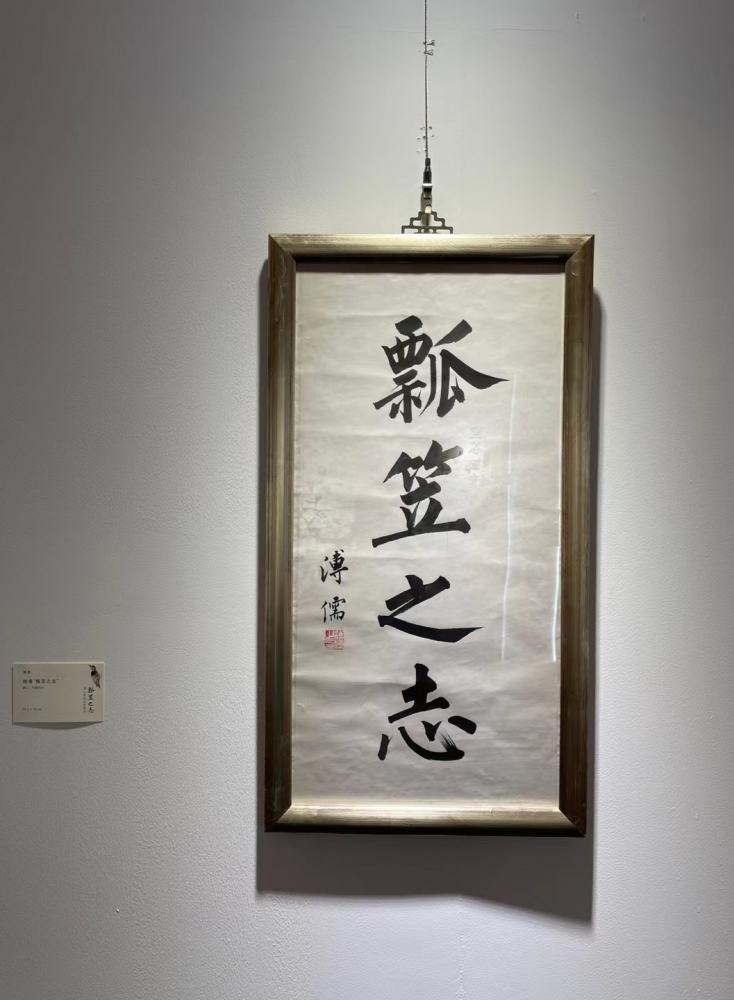 瓢笠之志
溥儒
溥儒
楷書“瓢笠之志”
瓢笠之志